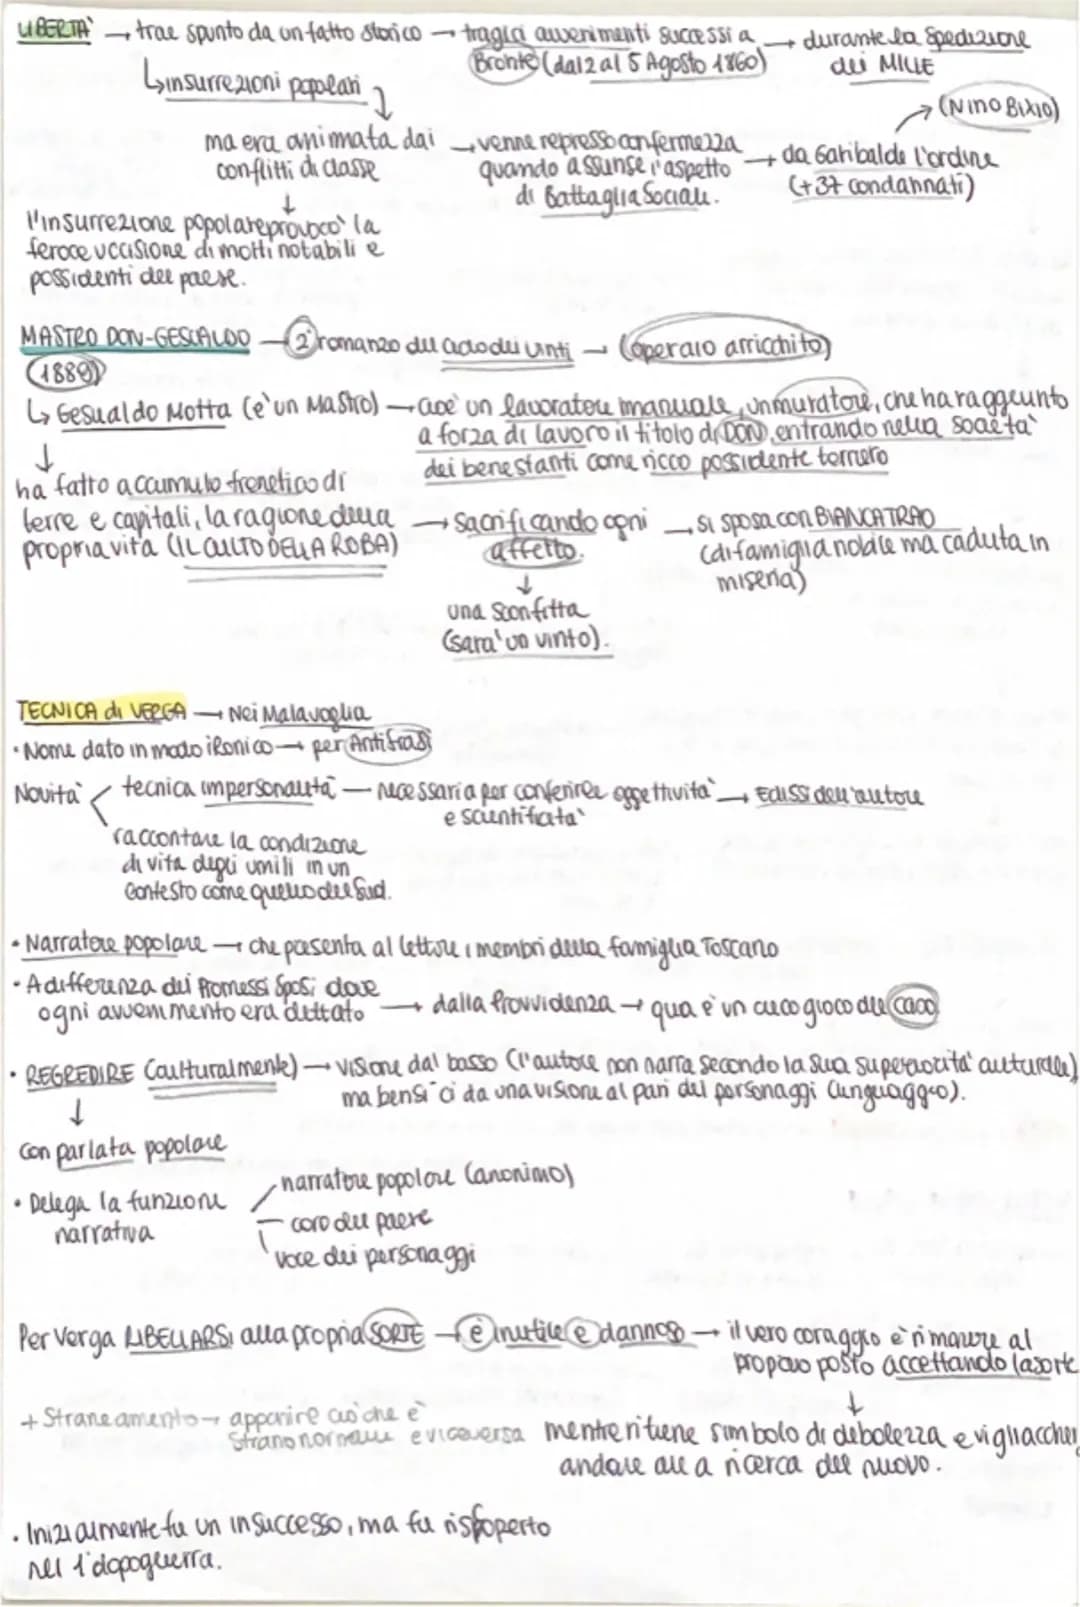 LIBERTA' → trae spunto da un fatto storico → tragici avvenimenti successi a Bronte (dal 2 al 5 Agosto 1860) → durante la Spedizione dei MILLE
↳ insurrezioni popolari
ma era animata dai conflitti di classe → venne represso con fermezza quando assunse l'aspetto di Battaglia Sociale. → da Garibaldi l'ordine (+37 condannati) → (NINO BIXIO)
↓
l'insurrezione popolare provocò la
feroce uccisione di molti notabili e
possidenti del paese.
MASTRO DON-GESUALDO → 2° romanzo del ciclo dei vinti → (operaio arricchito)
(1889)
↳ Gesualdo Motta (e' un MASTRO) → cioe' un lavoratore manuale, un muratore, che ha raggiunto
a forza di lavoro il titolo di DON, entrando nella società
dei benestanti come ricco possidente terriero
↓
ha fatto accumulo frenetico di
terre e capitali, la ragione della
propria vita (IL CULTO DELLA ROBA)
→ Sacrificando ogni affetto.
→ si sposa con BIANCA TRAO
(di famiglia nobile ma caduta in
miseria)
↓
una sconfitta
(sara' un vinto).
TECNICA di VERGA → Nei Malavoglia
• Nome dato in modo ironico → per Antifrasi
Novita' tecnica impersonalità — necessaria per conferire oggettivita' e scientificita' → Eclissi dell'autore
raccontare la condizione
di vita degli umili in un
contesto come quello del Sud.
• Narratore popolare → che presenta al lettore i membri della famiglia Toscano
• A differenza dei Promessi Sposi dove
ogni avvenimento era dettato → dalla Provvidenza → qua è un cieco gioco del caso
• REGREDIRE (culturalmente) → visione dal basso (l'autore non narra secondo la sua superiorita' culturale)
ma bensi' ci da una visione al pari del personaggi (linguaggio).
↓
con parlata popolare
• Delega la funzione
narrativa
narratore popolare (anonimo)
coro del paese
voce dei personaggi
Per Verga RIBELLARSI alla propria SORTE → è inutile e dannoso → il vero coraggio è rimanere al
proprio posto accettando la sorte
↓
+ Straneamento → apparire ciò che è
strano normale e viceversa
mentre ritiene simbolo di debolezza e vigliaccheri
andare alla ricerca del nuovo.
• Inizialmente fu un insuccesso, ma fu riscoperto
nel 1° dopoguerra.